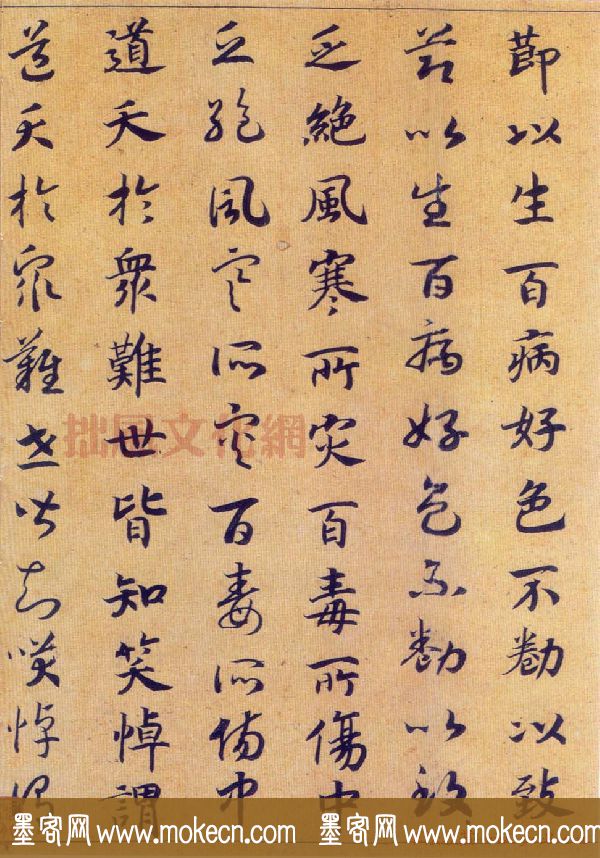 節以生百病好色不勌以致
節以生百病好色不勌以致
乏絕風寒所灾百毒所傷中
乏絕風寒所灾百毒所傷中
道夭於衆難世皆知笑悼謂
道夭於衆難世皆知笑悼謂
拙風文化網
墨客网 www.mokecn.com 墨客网 www.mokecn.com